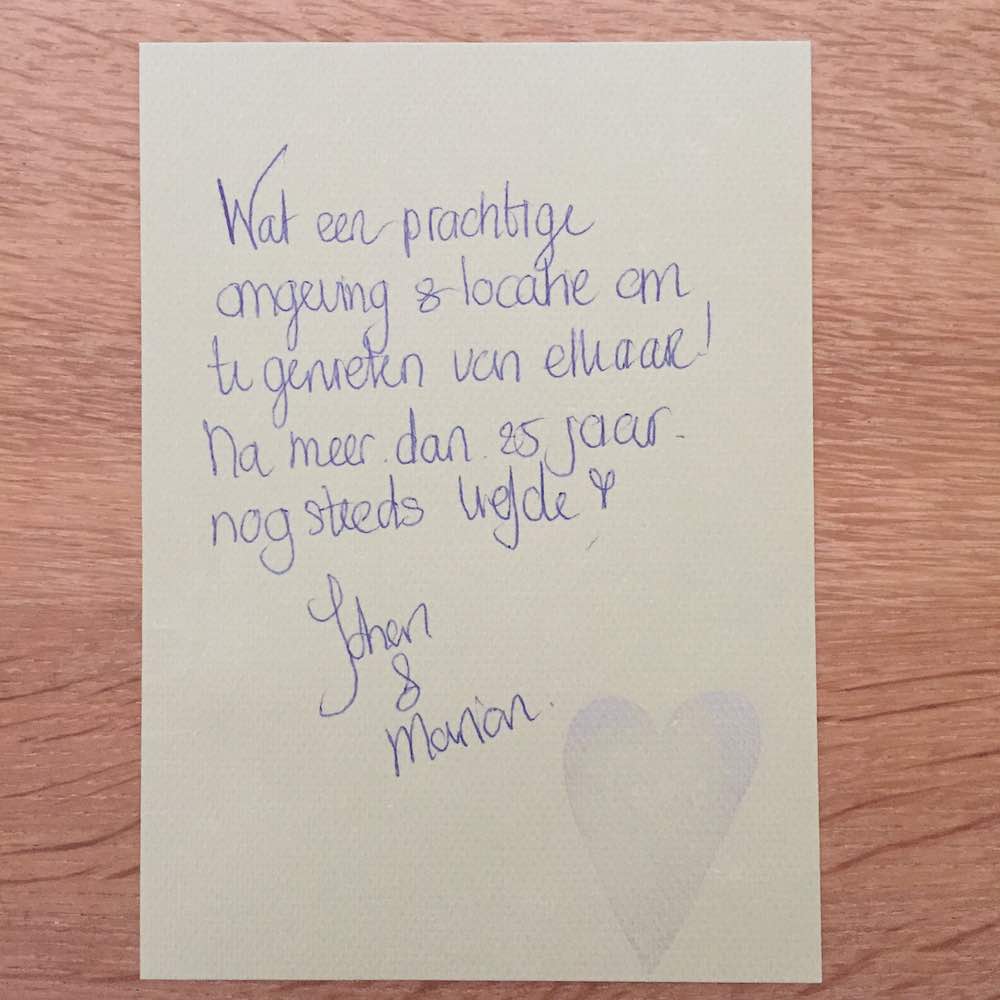 Wat een prachtige
omgeving & locatie om
te genieten van elkaar!
Na meer dan 25 jaar
nog steeds liefde ♡
Johan
&
Marian.